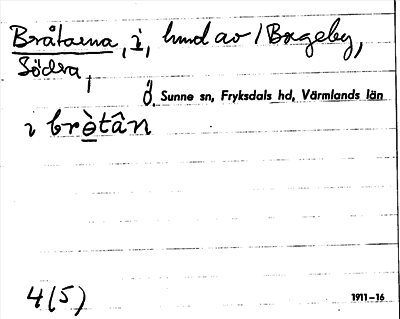 Bråtarna, i, hmd av 1 Bageby,
Södra,
Ö. Sunne sn, Fryksdals hd, Värmlands län
i brètân
4(5) 1911–16